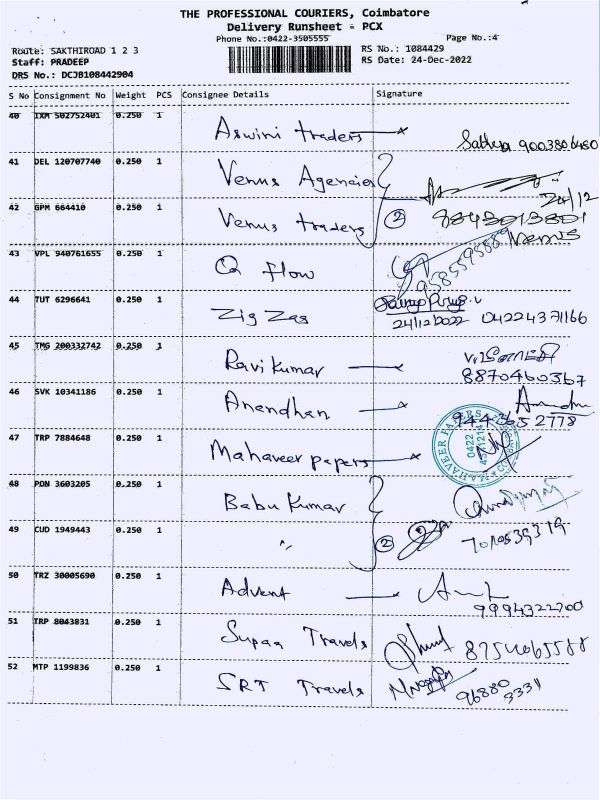 THE PROFESSIONAL COURIERS, Coimbatore
Delivery Runsheet - PCX
Phone No.:0422-3505555 Page No.:4
Route: SAKTHIROAD 1 2 3 RS No.: 1084429
Staff: PRADEEP RS Date: 24-Dec-2022
DRS No.: DCJB108442904
S No Consignment No Weight PCS Consignee Details Signature
40 IXM 502752401 0.250 1 Aswini traders Sathya 9003806450
41 DEL 120707740 0.250 1 Venus Agencies
24/12
42 GPM 664410 0.250 1 Venus traders 2 9843013801
Venus
43 VPL 940761655 0.250 1 Q flow 9585595889
44 TUT 6296641 0.250 1 Zig Zag
24/12/2022 04224371166
45 TMG 200332742 0.250 1 Ravi Kumar
8870460367
46 SVK 10341186 0.250 1 Anandhan
9443652778
47 TRP 7884648 0.250 1 Mahaveer papers
MAHAVEER PAPERS
0422
48 PON 3603205 0.250 1 Babu Kumar
49 CUD 1949443 0.250 1 〃 2
50 TRZ 30005690 0.250 1 Advent
9994322700
51 TRP 8043831 0.250 1 Supaa Travels 8754065588
52 MTP 1199836 0.250 1 SRT Travels 96880
3331